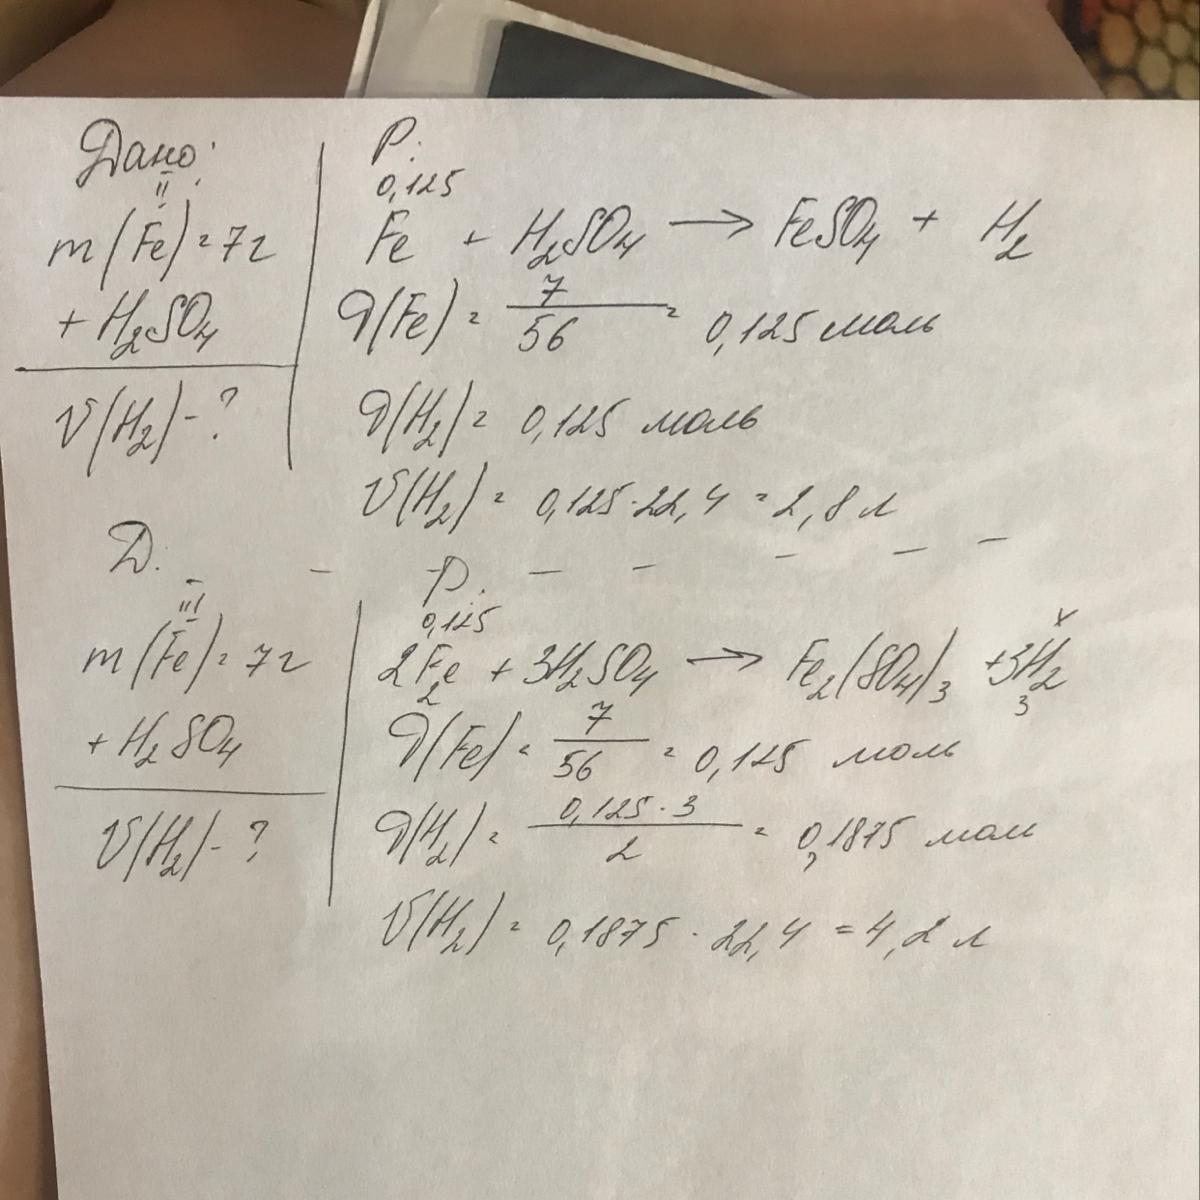 Дано:
II
m(Fe) = 7г
+ H₂SO₄
V(H₂) - ?
Р:
0,125
Fe + H₂SO₄ → FeSO₄ + H₂
ϑ(Fe) = 7/56 = 0,125 моль
ϑ(H₂) = 0,125 моль
V(H₂) = 0,125·22,4 = 2,8 л
Д:
III
m(Fe) = 7г
+ H₂SO₄
V(H₂) - ?
Р:
0,125 x
2Fe + 3H₂SO₄ → Fe₂(SO₄)₃ + 3H₂
2 3
ϑ(Fe) = 7/56 = 0,125 моль
ϑ(H₂) = 0,125·3/2 = 0,1875 моль
V(H₂) = 0,1875 · 22,4 = 4,2 л